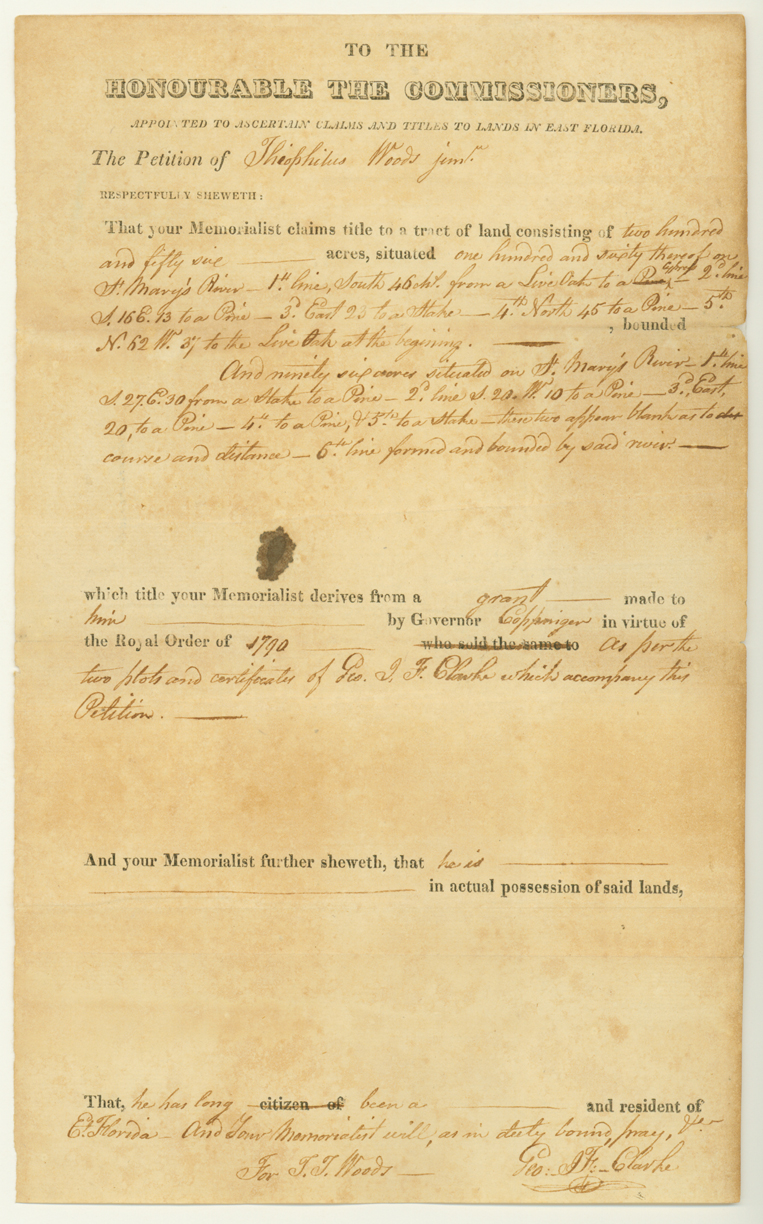 TO THE
HONOURABLE THE COMMISSIONERS,
APPOINTED TO ASCERTAIN CLAIMS AND TITLES TO LANDS IN EAST FLORIDA.
The Petition of Theophilus Woods junr.
RESPECTFULLY SHEWETH:
That your Memorialist claims title to a tract of land consisting of two hundred
and fifty six acres, situated one hundred and sixty thereof on
St. Mary's River — 1st line, South 46 chs. from a Live Oak to a Cypress — 2d. line
S. 16 E. 13 to a Pine — 3d. East 25 to a Stake — 4th. North 45 to a Pine — 5th.
N. 62 W. 37 to the Live Oak at the begining. — , bounded
And ninety six acres situated on St. Mary's River — 1st. line
S. 27 E. 30 from a Stake to a Pine — 2d. line S. 20 W. 10 to a Pine — 3d. East,
20, to a Pine — 4th. to a Pine, & 5th. to a Stake — these two appear blank as to
course and distance — 6th. line formed and bounded by said river. —
which title your Memorialist derives from a grant made to
him by Governor Coppinger in virtue of
the Royal Order of 1790 who sold the same to as per the
two plots and certificates of Geo. J. F. Clarke which accompany this
Petition. —
And your Memorialist further sheweth, that he is
in actual possession of said lands,
That, he has long citizen of been a and resident of
Et. Florida — And Your Memorialist will, as in duty bound, pray, &c.
For T. T. Woods — Geo: J. F. Clarke